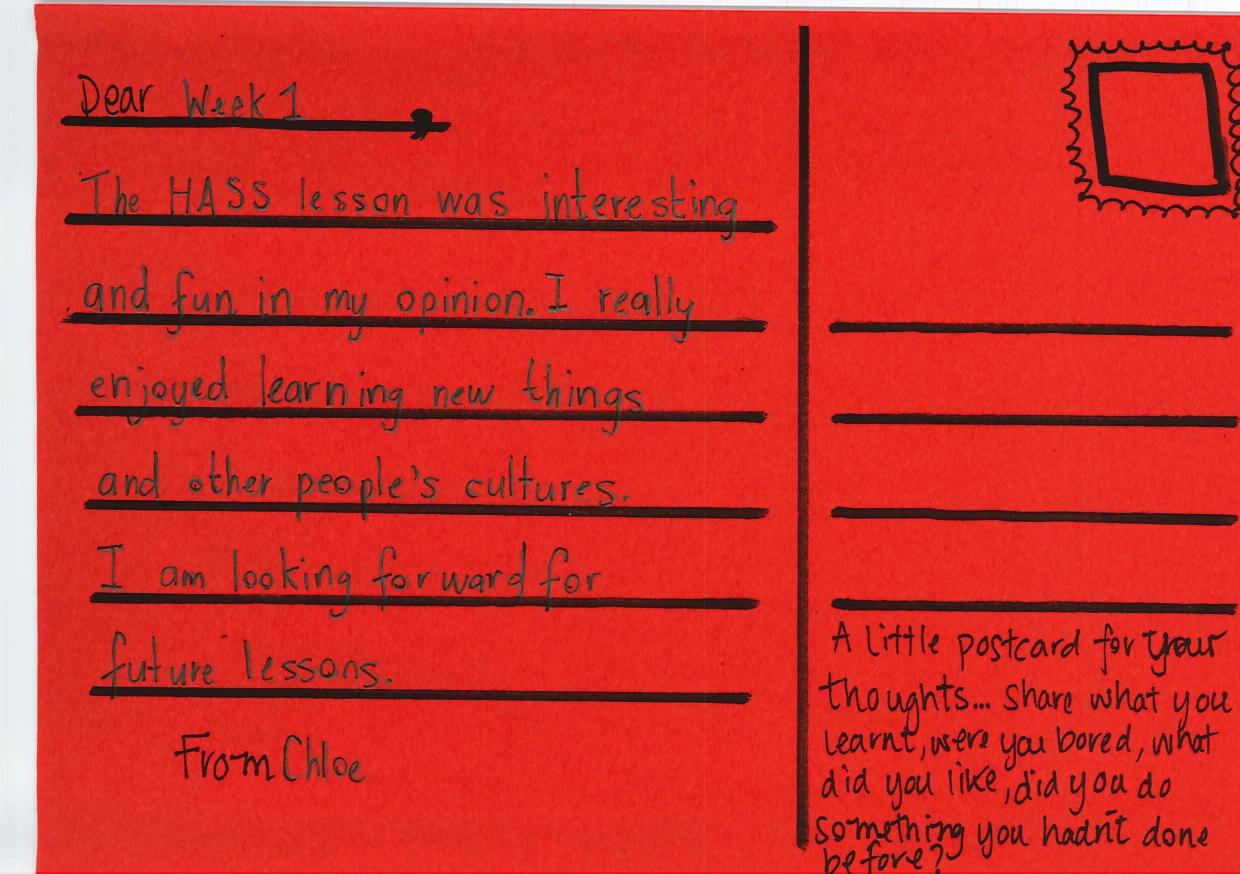 Dear Week 1,
The HASS lesson was interesting
and fun in my opinion. I really
enjoyed learning new things
and other people's cultures.
I am looking forward for
future lessons.
From Chloe
A little postcard for your
thoughts... Share what you
learnt, were you bored, what
did you like, did you do
something you hadn't done
before?